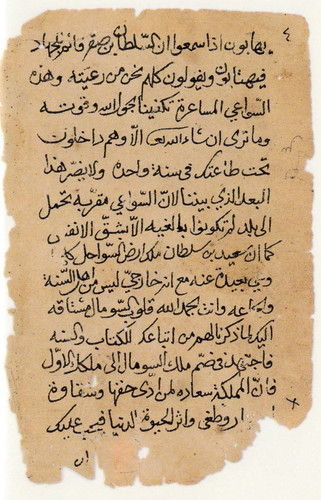 ٤
يهابون اذا سمعوا ان السلطان بن صقر قائم بجهاد
فيهتابون ويقولون كلهم نحن من رعيته وهذه
السواعي المساعرة تكفينا بحول الله وقوته
وما ترى ان شاء الله تعالى الا وهم داخلون
تحت طاعتك في سنة واحدة ولا يضر هذا
البعد الذي بيننا لان السواعي مقربة تحمل
الى بلد لم تكونوا بالغيه الا بشق الانفس
كما ان سعيد بن سلطان ملك ارض السواحل كلها
وهي بعيدة عنه مع انه خارجي ليس من اهل السنة
والجماعه وانت بحمد الله قلوب السومال مشتاقه
اليك بما ذكرنا لهم من اتباعك للكتاب والسنه
فاجتهد في ضم ملك السومال الى ملكك الاول
فان المملكة سعاده لمن ادى حقها وشقاوة
وطغى واثر الحيوة الدنيا فيجب عليك
ان